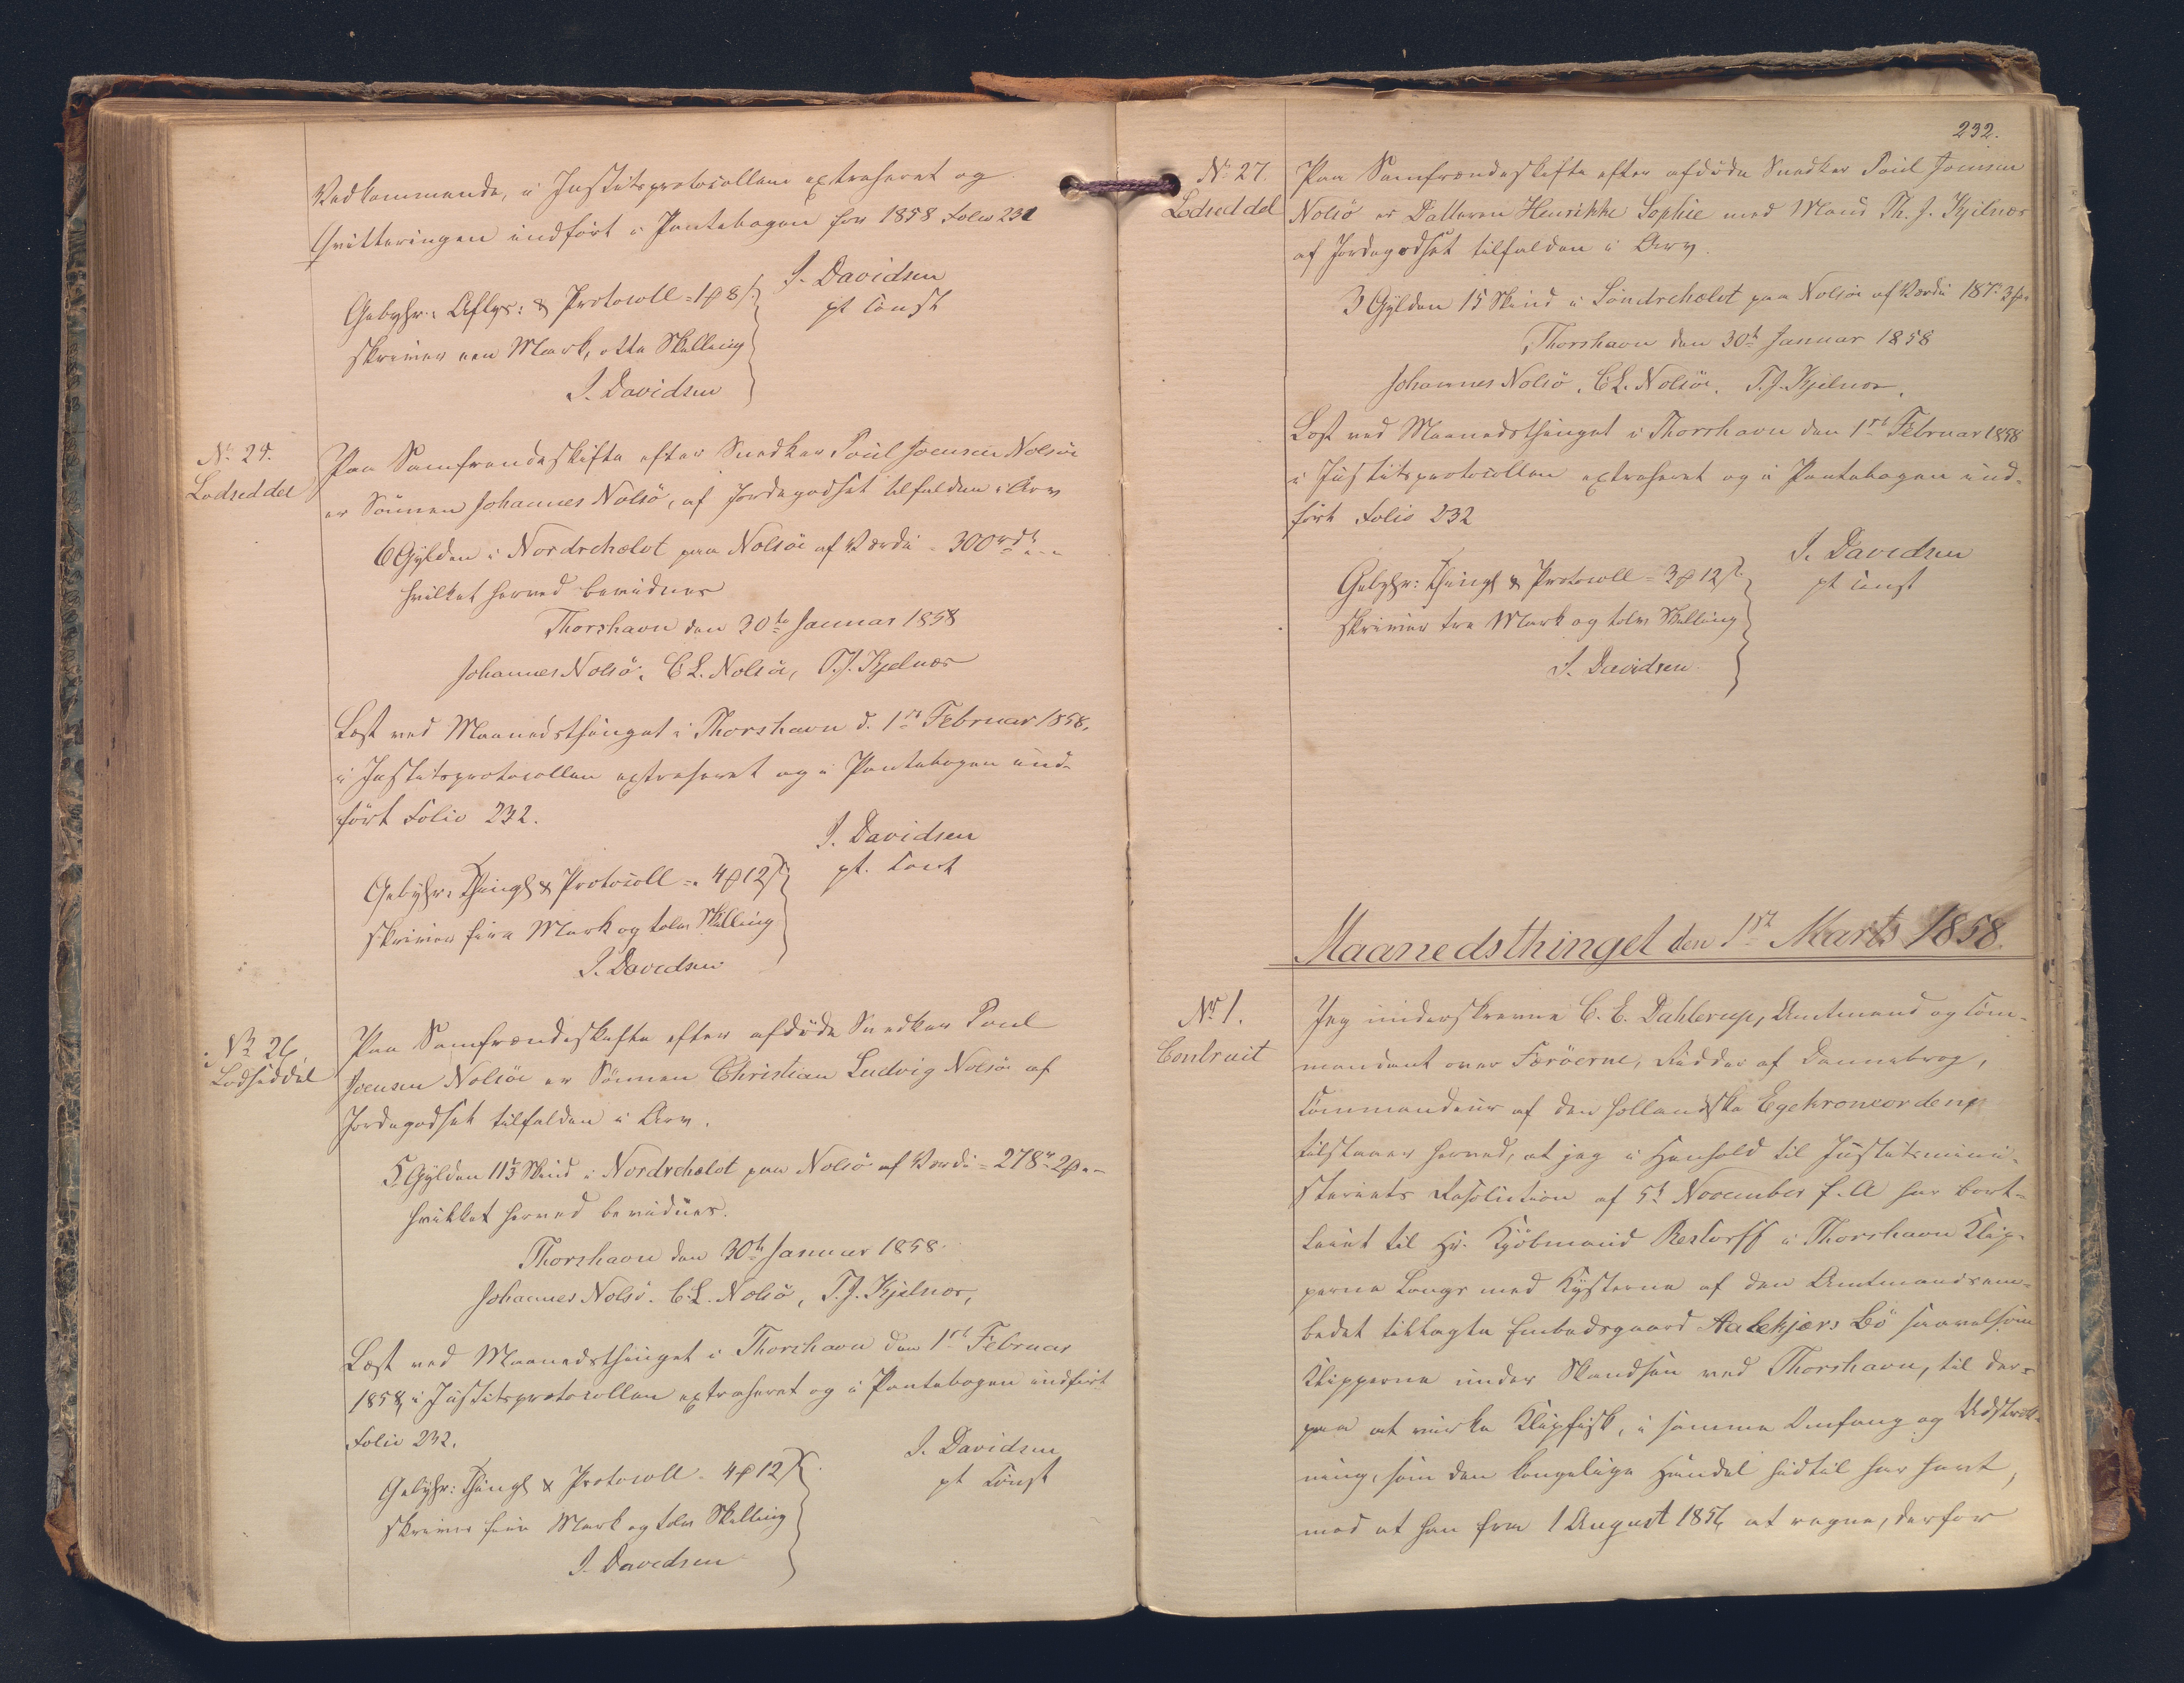 Vedkommende, i Justitsprotocollen extraheret og
Qvitteringen indført i Pantebogen for 1858 Folio 231
J. Davidsen
pt Const
Gebyhr: Aflys: & Protocoll = 1 ₰ 8 s.
skriver een Mark, otte Skilling
J. Davidsen
No. 25.
Lodseddel
Paa Samfrendeskifte efter Snedker Poul Joensen Nolsöe
er Sönnen Johannes Nolsö, af Jordegodset tilfalden i Arv
6 Gylden i Nordrehælvt paa Nolsöe af Værdi = 300 rd
hvilket herved bevidnes
Thorshavn den 30te Januar 1858
Johannes Nolsö. C. L. Nolsöe, T. J. Kjelnæs
Læst ved Maanedsthinget i Thorshavn d. 1ste Februar 1858,
i Justitsprotocollen extraheret og i Pantebogen ind-
ført Folio 232.
J. Davidsen
pt. Const
Gebyhr: Thingl & Protocoll = 4 ₰ 12 s.
skriver fire Mark og tolv Skilling
J. Davidsen
No. 26
Lodseddel
Paa Samfrændeskifte efter afdøde Snedker Poul
Joensen Nolsöe er Sönnen Christian Ludvig Nolsöe af
Jordegodset tilfalden i Arv.
5 Gylden 11 1/3 Skind i Nordrehælvt paa Nolsö af Værdi = 278 rd 2 ₰
hvilket herved bevidnes.
Thorshavn den 30te Januar 1858.
Johannes Nolsö. C. L. Nolsö, T. J. Kjelnæs,
Læst ved Maanedsthinget i Thorshavn den 1ste Februar
1858, i Justitsprotocollen extraheret og i Pantebogen indført
Folio 232.
J. Davidsen
pt Const
Gebyhr: Thingl & Protocoll = 4 ₰ 12 s.
skriver fire Mark og tolv Skilling
J. Davidsen
232.
No. 27.
Lodseddel
Paa Samfrændeskifte efter afdøde Snedker Poul Joensen
Nolsö er Datteren Henrikke Sophie med Mand Th. J. Kjelnæs
af Jordegodset tilfalden i Arv.
3 Gylden 15 Skind i Søndrehælvt paa Nolsöe af Værdi 187 rd 3 ₰
Thorshavn den 30te Januar 1858
Johannes Nolsö, C. L. Nolsöe, T. J. Kjelnæs.
Læst ved Maanedsthinget i Thorshavn den 1ste Februar 1858
i Justitsprotocollen extraheret og i Pantebogen ind-
ført Folio 232
J. Davidsen
pt Const
Gebyhr: Thingl & Protocoll = 3 ₰ 12 s.
skriver tre Mark og tolv Skilling
J. Davidsen.
Maanedsthinget den 1ste Marts 1858.
No. 1.
Contract
Jeg underskrevne C. E. Dahlerup, Amtmand og Com-
mandant over Færöerne, Ridder af Dannebrog,
Commandeur af den hollandske Egekroneordenp
tilstaaer herved, at jeg i Henhold til Justitsmini-
steriets Resolution af 5t November f. A har bort-
leiet til Hr. Kjöbmand Restorff i Thorshavn Klip-
perne langs med Kysterne af den Amtmandsem-
bedet tillagte Embedsgaard Aalekjærs Bö saavelsom
Klipperne under Skandsen ved Thorshavn, til der-
paa at virke Klipfisk, i samme Omfang og Udstræk-
ning, som den kongelige Handel hidtil har havt,
mod at han fra 1 August 1856 at regne, derfor